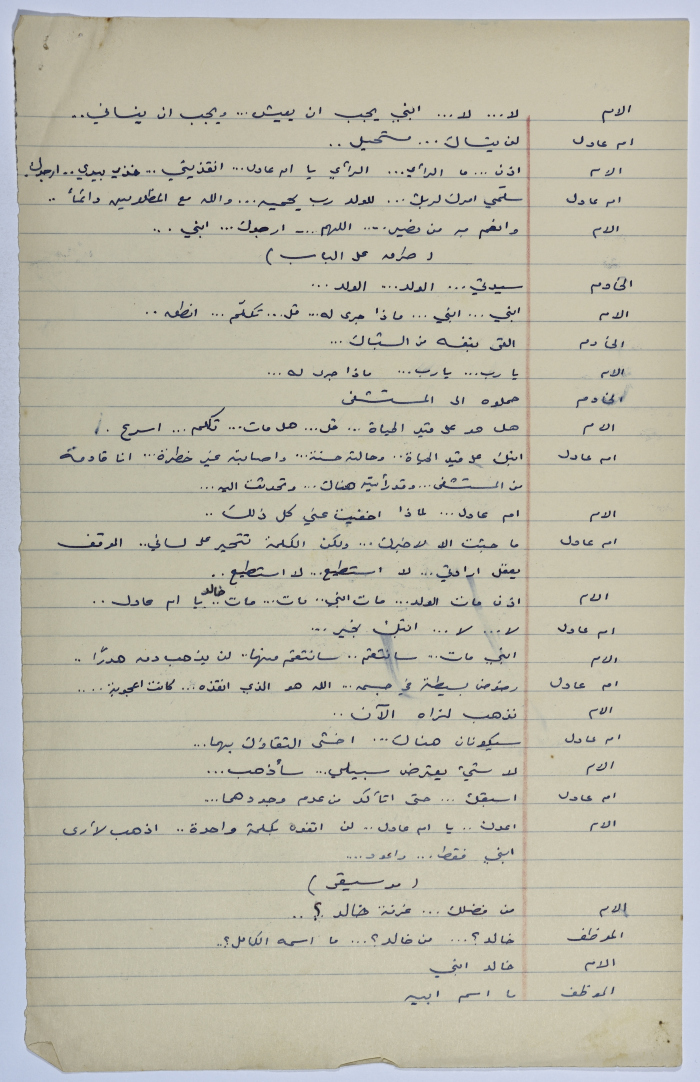 الام لا... لا... ابني يجب ان يعيش... ويجب ان ينساني..
ام عادل لن ينساك... مستحيل..
الام اذن... ما الرأي... الرأي يا ام عادل... انقذيني... خذي بيدي.. ارجوك.
ام عادل سلمي امرك لربك... للولد رب يحميه... والله مع المظلومين دائماً..
الام وانعم به من نصير.... اللهم... ارجوك... ابني...
( طرق على الباب )
الخادم سيدتي... الولد... الولد...
الام ابني... ابني... ماذا جرى له... قل... تكلّم... انطق..
الخادم القى بنفسه من الشباك...
الام يا رب... يا رب... ماذا جرى له...
الخادم حملوه الى المستشفى
الام هل هو على قيد الحياة... قل... هل مات... تكلم... اسرع.
ام عادل ابنك على قيد الحياة.. وحالته حسنة... واصابته غير خطرة... انا قادمة
من المستشفى... وقد رأيته هناك... وتحدثت اليه...
الام ام عادل... لماذا اخفيت عني كل ذلك..
ام عادل ما جئت الا لاخبرك... ولكن الكلمة تتحير على لساني.. الموقف
يعقل ارادتي... لا استطيع... لا استطيع..
الام اذن مات الولد... مات ابني.. مات... مات خالد.. يا ام عادل..
ام عادل لا... لا... ابنك بخير...
الام ابني مات... سأنتقم.. سأنتقم منها.. لن يذهب دمه هدرًا..
ام عادل رضوض بسيطة في جسمه... الله هو الذي انقذه... كانت اعجوبة....
الام نذهب لنراه الآن..
ام عادل سيكونان هناك... اخشى التقاؤك بهما...
الام لا شيء يعترض سبيلي... سأذهب...
ام عادل اسبقك... حتى اتأكد من عدم وجودهما...
الام اعدك.. يا ام عادل.. لن اتفوه بكلمة واحدة.. اذهب لأرى
ابني فقط... واعود....
( موسيقى )
الام من فضلك... غرفة خالد؟..
الموظف خالد؟... من خالد؟... ما اسمه الكامل؟..
الام خالد ابني
الموظف ما اسم ابيه